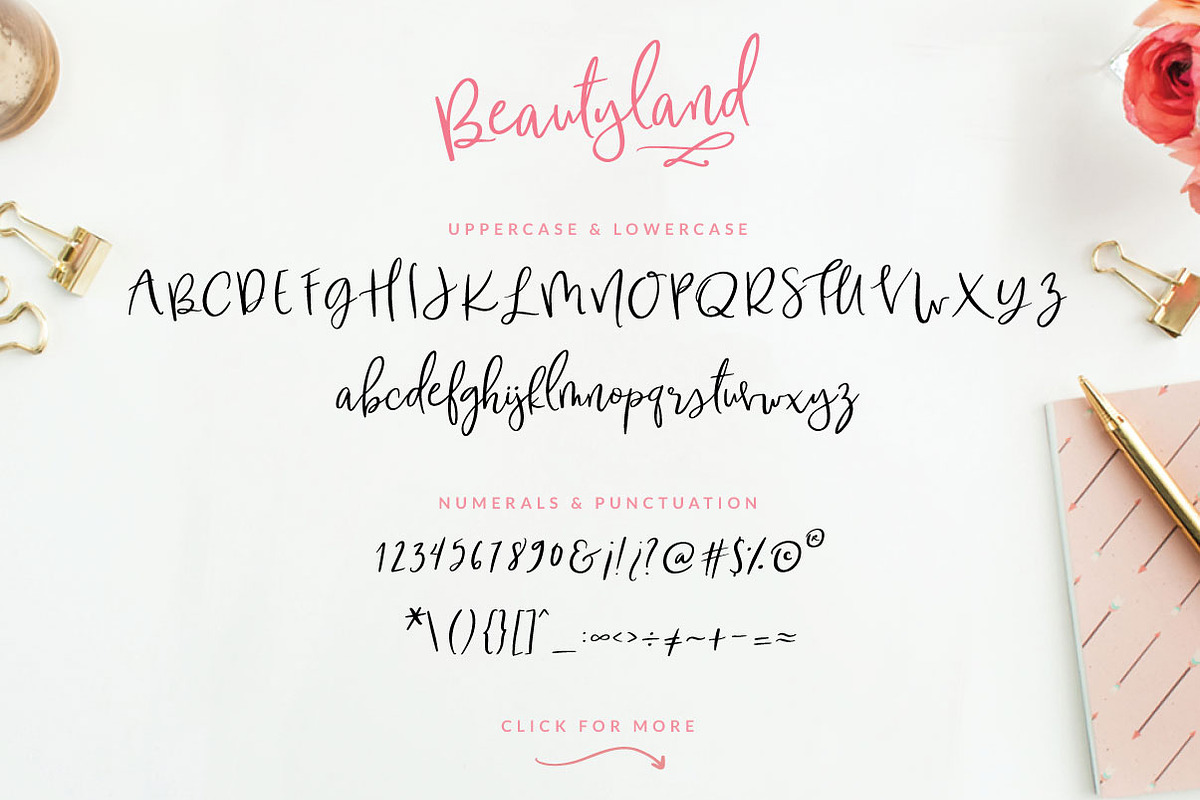 Beautyland
UPPERCASE & LOWERCASE
ABCDEFGHIJKLMNOPQRSTUVWXYZ
abcdefghijklmnopqrstuvwxyz
NUMERALS & PUNCTUATION
1234567890&¡!¿?@#$%©®
*\(){}[]^_:∞<>÷≠~+-=≈
CLICK FOR MORE